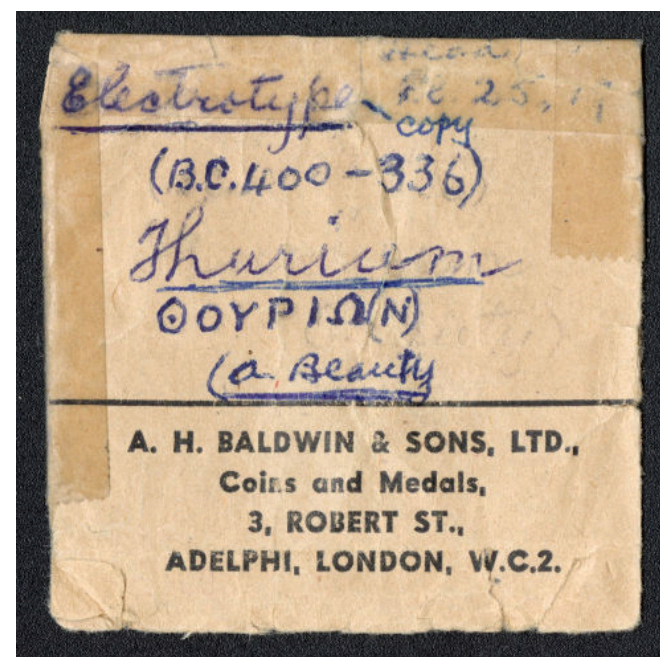 Head
Electrotype Pl. 25,
copy
(B.C. 400-336)
Thurium
ΘΟΥΡΙΩ(Ν)
(a Beauty
A. H. BALDWIN & SONS, LTD.,
Coins and Medals,
3, ROBERT ST.,
ADELPHI, LONDON, W.C.2.